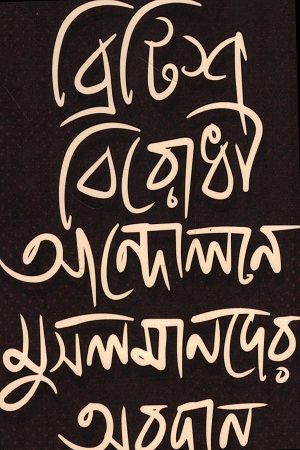 ব্রিটিশ
বিরোধী
আন্দোলনে
মুসলমানদের
অবদান